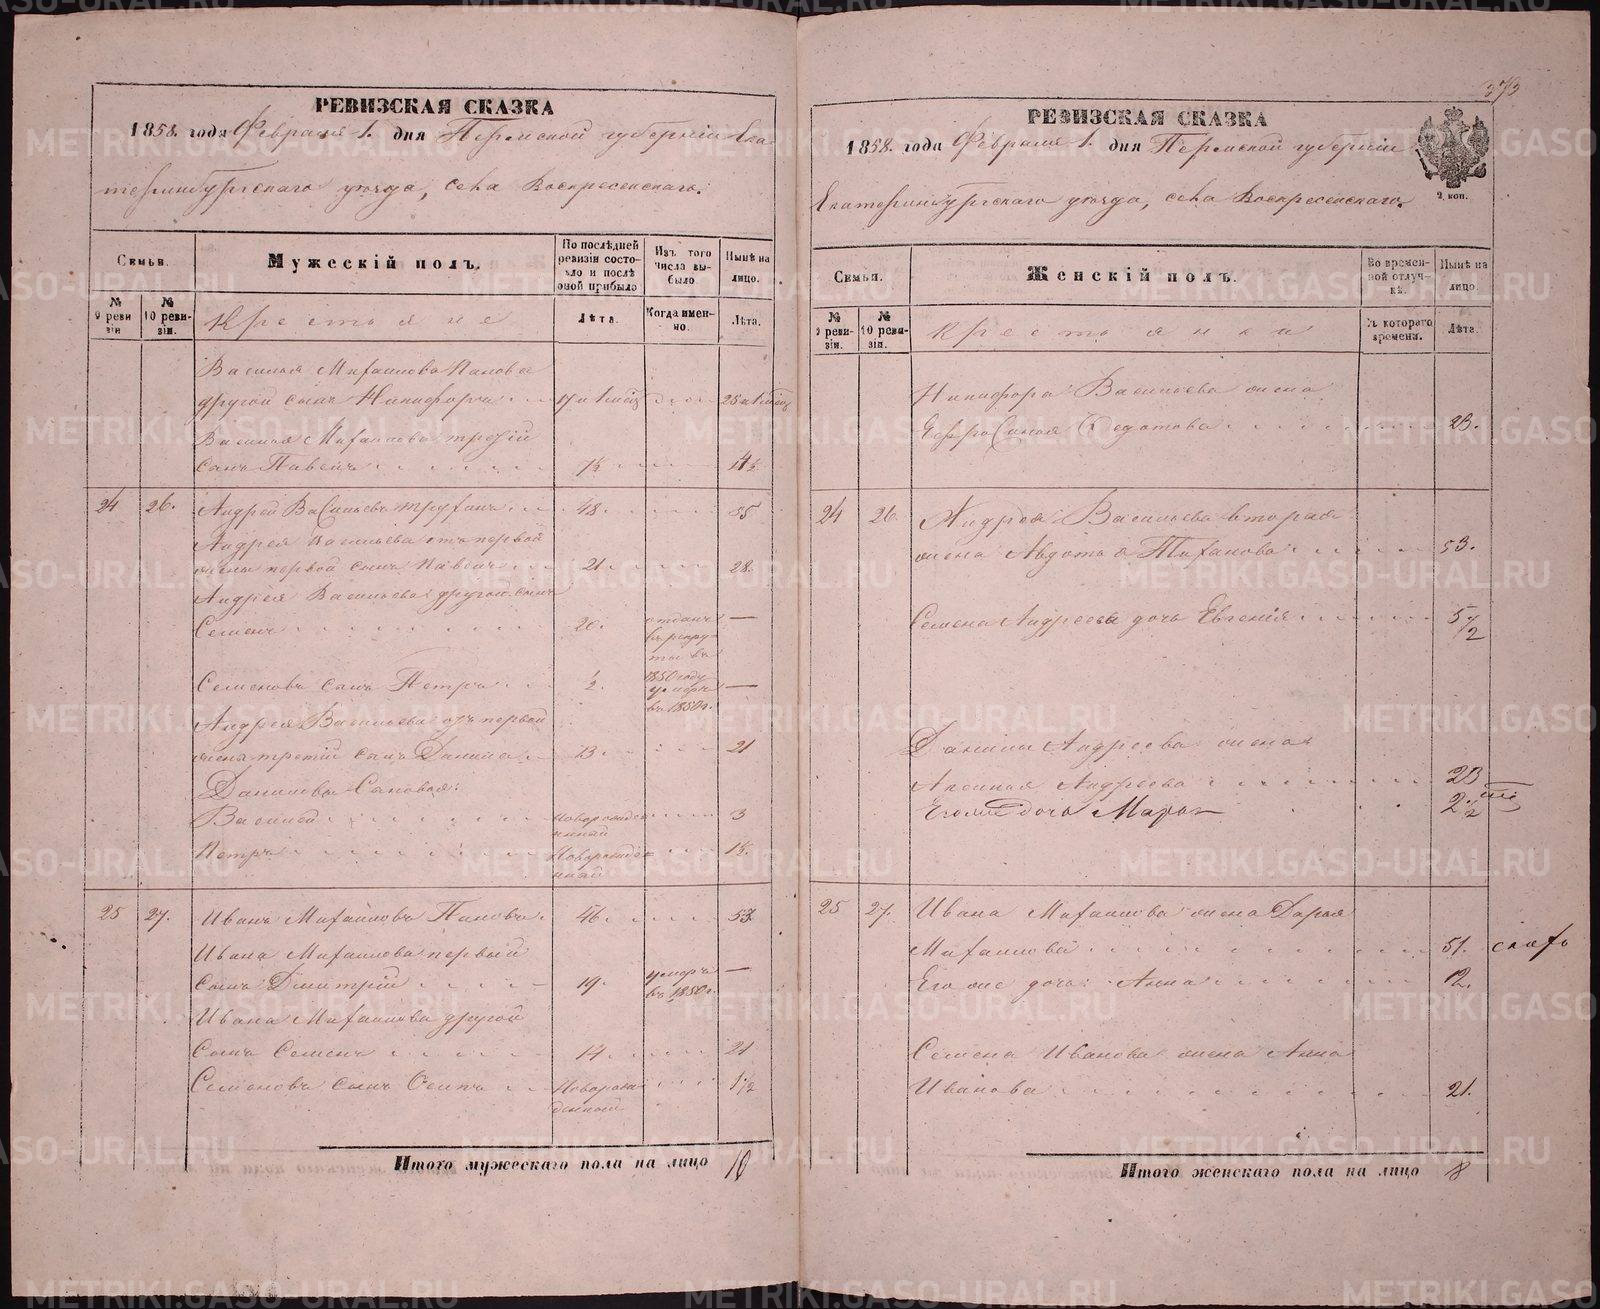 373
РЕВИЗСКАЯ СКАЗКА
1858. года Февраля 1. дня Пермской губернiи Ека-
теринбургскаго уѣзда, села Воскресенскаго.
Семьи.
Мужескiй полъ.
По послѣдней ревизiи состояло и послѣ оной прибыло
Изъ того числа выбыло.
Нынѣ на лицо.
№ 9 ревизiи
№ 10 ревизiи.
Крестьяне
Лѣта.
Когда именно.
Лѣта.
Василья Михайлова Панова
другой сынъ Никифоръ 17 25
Василья Михайлова третiй
сынъ Павелъ 7½ 14½
24 26. Андрей Васильевъ 48. 55
Андрея Васильева отъ первой
жены первой сынъ Павелъ 21 28.
Андрея Васильева другой сынъ
Семенъ 20. отданъ въ рекруты въ 1850 году —
Семеновъ сынъ Петръ ½ умеръ въ 1850 г. —
Андрея Васильева отъ первой
жены третiй сынъ Данила 13. 21
Даниловы Сыновья:
Василiй новорожденный 3
Петръ Новорожденный 1½
25 27. Иванъ Михайловъ Пановъ. 46 53
Ивана Михайлова первый
сынъ Дмитрiй 19. умеръ въ 1850 г. —
Ивана Михайлова другой
Сынъ Семенъ 14 21
Семеновъ сынъ Осипъ Новорожденной 1½
Итого мужескаго пола на лицо 10
РЕВИЗСКАЯ СКАЗКА
1858. года Февраля 1. дня Пермской губернiи
Екатеринбургскаго уѣзда, села Воскресенскаго.
2. коп.
Семьи.
Женскiй полъ.
Во временной отлучкѣ.
Нынѣ на лицо.
№ 9 ревизiи.
№ 10 ревизiи.
Крестьянки
Съ котораго времени.
Лѣта.
Никифора Васильева жена
Федотова 23.
24 26. Андрея Васильева вторая
жена Авдотья 53.
Семена Андреева дочь Евгенiя 5½
Данилы Андреева жена
Аксинья Андреева 23
Его же дочь Марья 2½
25 27. Ивана Михайлова жена Дарья
Михайлова 51.
Его же дочь Анна 12.
Семена Иванова жена Анна
Иванова 21.
Итого женскаго пола на лицо 8
METRIKI.GASO-URAL.RU